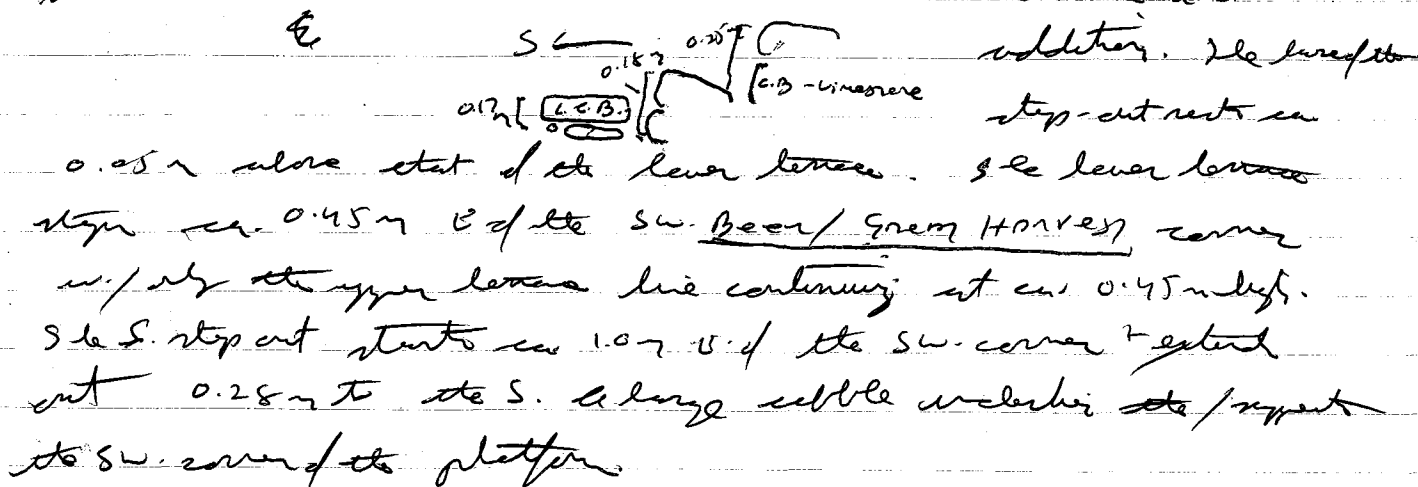 S ← 0.18m 0.25 addition. The base of the
0.17m [ L.C.B. [C.B - Limestone step-out rests ca
0.05m above that of the lower terrace. The lower terrace
stops ca. 0.45m E of the SW. Beer/ Grem Harvest corner
w./ only the upper terrace line continuing at ca. 0.45m high.
The S. step out starts ca 1.0m E. of the SW. corner + extend
out 0.28m to the S. A large cobble underlies the / supports
the SW. corner of the platform